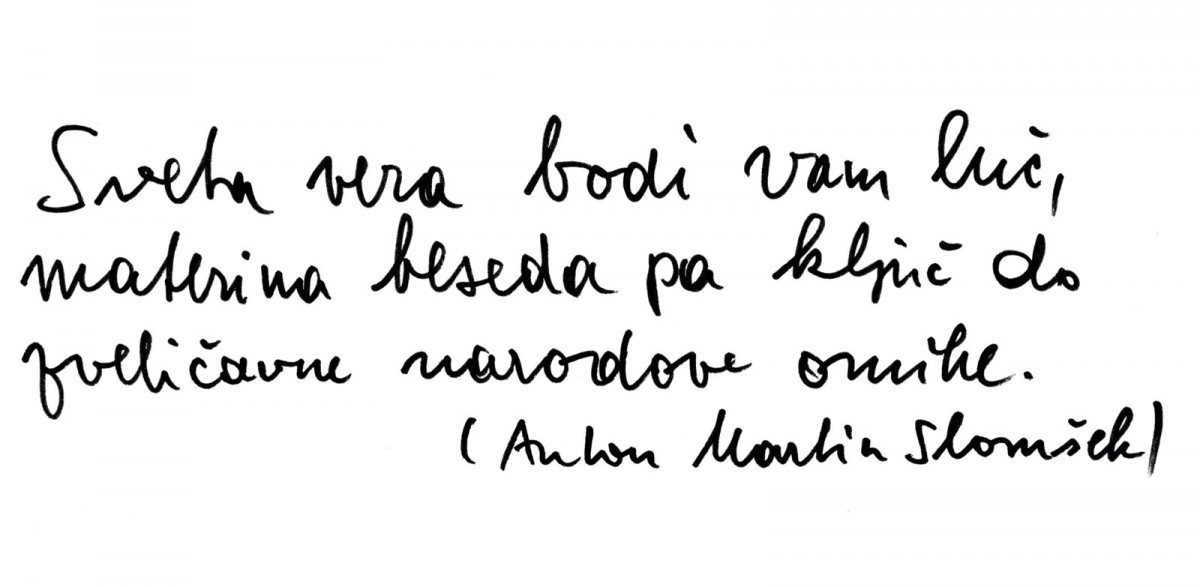 Sveta vera bodi vam luč,
materina beseda pa ključ do
zveličavne narodove omike.
(Anton Martin Slomšek)